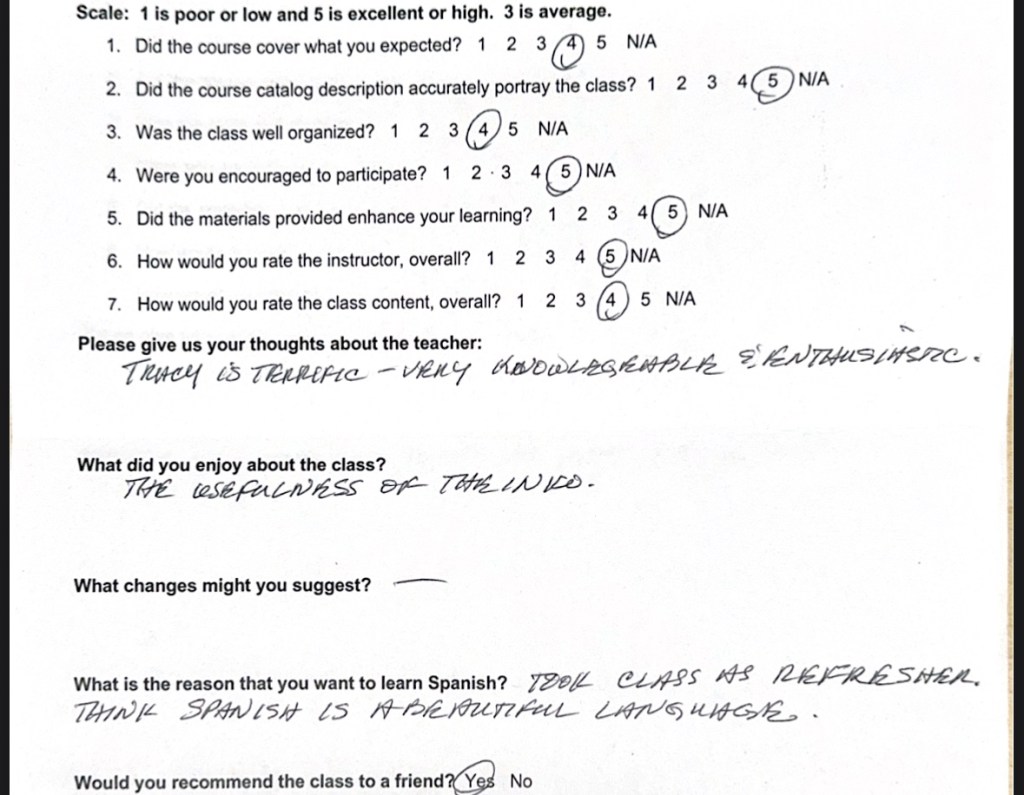 Scale: 1 is poor or low and 5 is excellent or high. 3 is average.
1. Did the course cover what you expected? 1 2 3 4 5 N/A
2. Did the course catalog description accurately portray the class? 1 2 3 4 5 N/A
3. Was the class well organized? 1 2 3 4 5 N/A
4. Were you encouraged to participate? 1 2 3 4 5 N/A
5. Did the materials provided enhance your learning? 1 2 3 4 5 N/A
6. How would you rate the instructor, overall? 1 2 3 4 5 N/A
7. How would you rate the class content, overall? 1 2 3 4 5 N/A
Please give us your thoughts about the teacher:
TRACY IS TERRIFIC – VERY KNOWLEGEABLE & ENTHUSIASTIC.
What did you enjoy about the class?
THE USEFULNESS OF THE INFO.
What changes might you suggest? —
What is the reason that you want to learn Spanish? TOOK CLASS AS REFRESHER.
THINK SPANISH IS A BEAUTIFUL LANGUAGE.
Would you recommend the class to a friend? Yes No